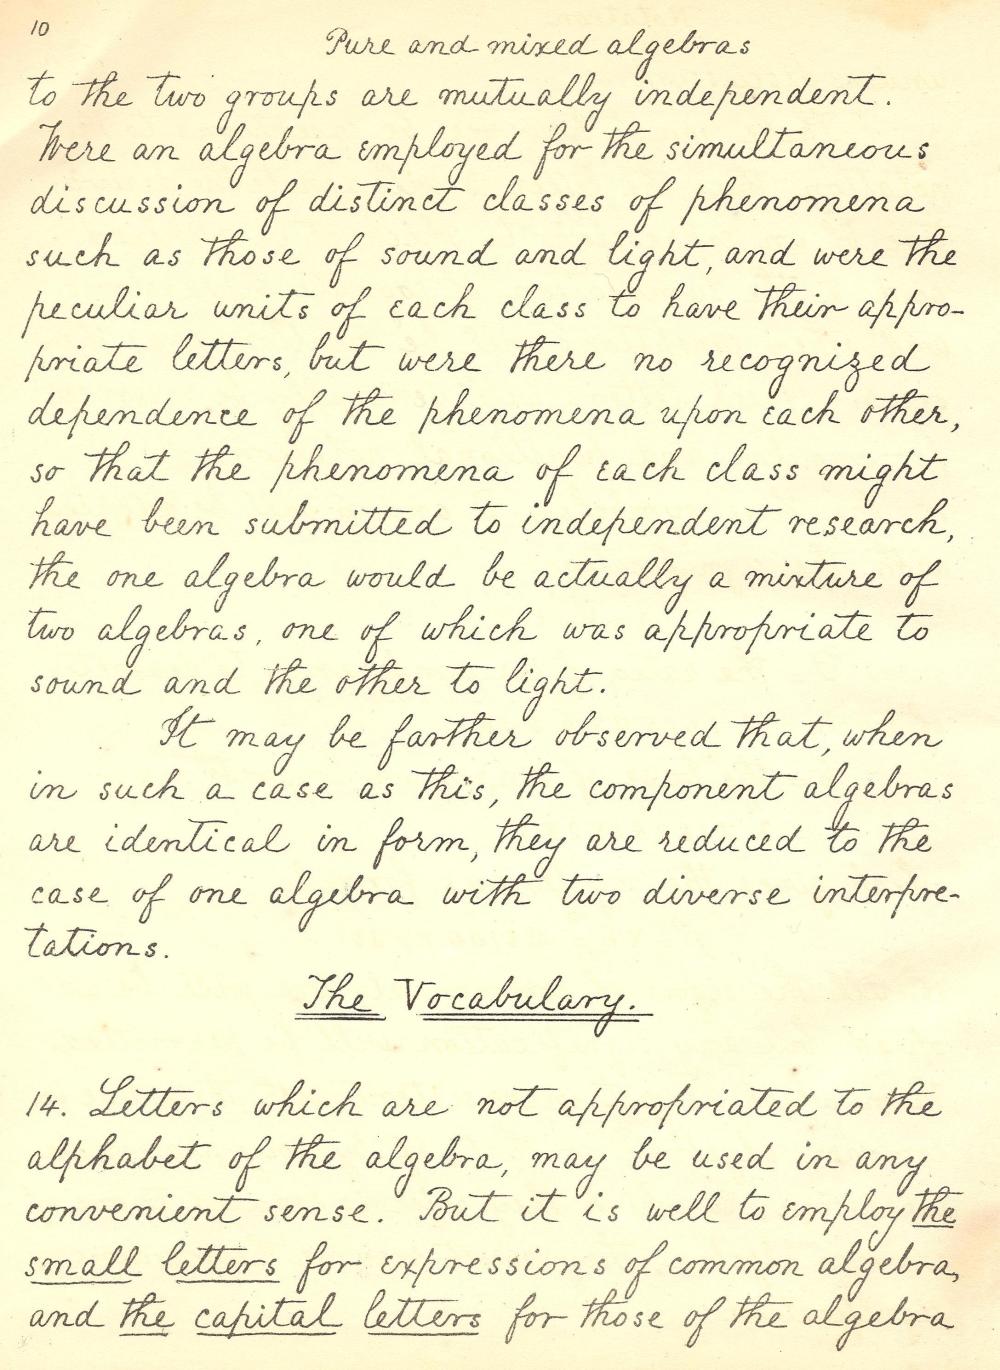 10
Pure and mixed algebras
to the two groups are mutually independent.
Were an algebra employed for the simultaneous
discussion of distinct classes of phenomena
such as those of sound and light, and were the
peculiar units of each class to have their appro-
priate letters, but were there no recognized
dependence of the phenomena upon each other,
so that the phenomena of each class might
have been submitted to independent research,
the one algebra would be actually a mixture of
two algebras, one of which was appropriate to
sound and the other to light.
It may be farther observed that, when
in such a case as this, the component algebras
are identical in form, they are reduced to the
case of one algebra with two diverse interpre-
tations.
The Vocabulary.
14. Letters which are not appropriated to the
alphabet of the algebra, may be used in any
convenient sense. But it is well to employ the
small letters for expressions of common algebra,
and the capital letters for those of the algebra